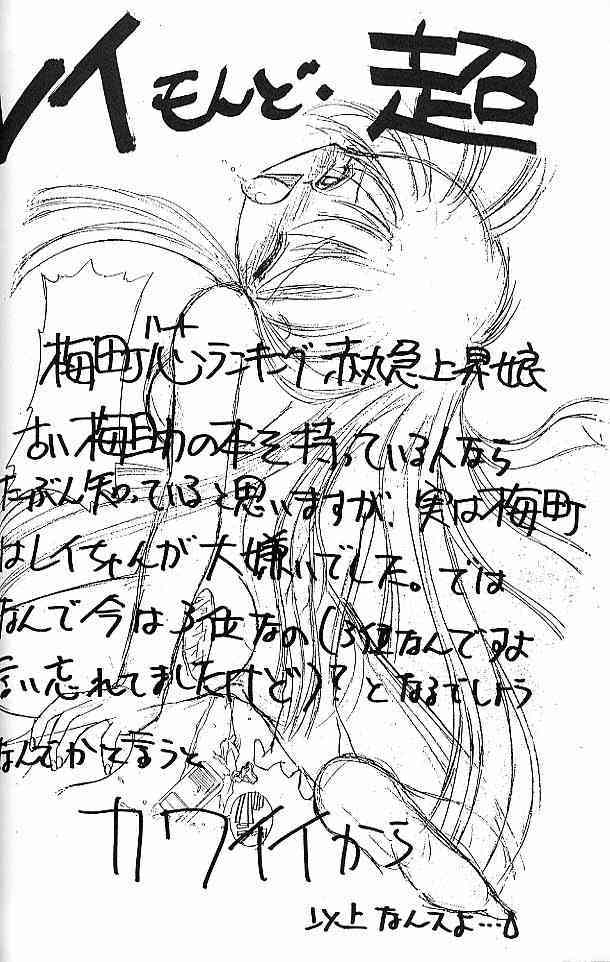 レイもんど・超
ハート
梅町心ランキング赤丸急上昇娘
古い梅助の本を持っている人なら
たぶん知っていると思いますが、実は梅町
はレイちゃんが大嫌いでした。では
なんで今は3位なの(3位なんですよ
言い忘れてましたけど)?となるでしょう
なんでかと言うと
カワイイから
以上なんスよ…。